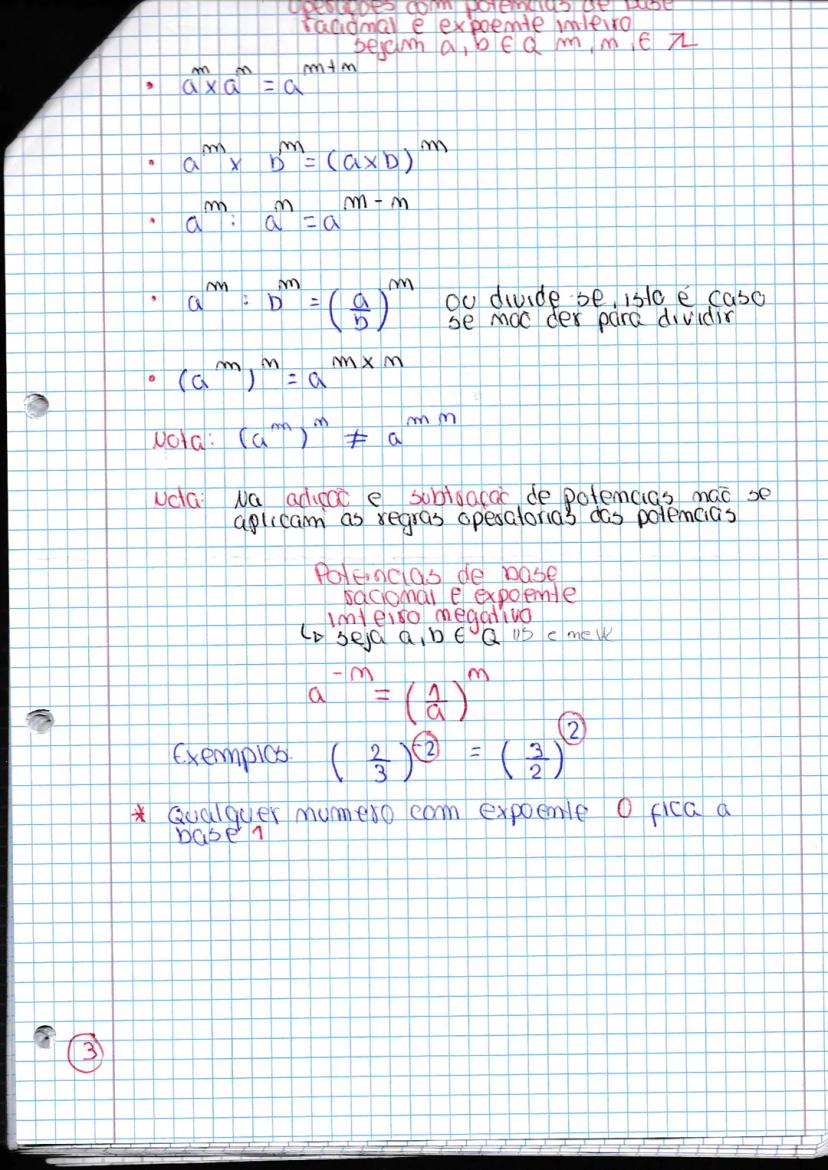 Operações com potências de base
racional e expoente inteiro
sejam a, b ∈ Q m, n, ∈ Z
• a^m x a^n = a^(m+n)
• a^m x b^m = (a x b)^m
• a^m : a^n = a^(m-n)
• a^m : b^m = (a/b)^m ou divide se, isto é caso
se não der para dividir
• (a^m)^n = a^(m x n)
Nota: (a^m)^n ≠ a^(m n)
Nota: Na adição e subtração de potencias não se
aplicam as regras operatorias das potências
Potências de base
racional e expoente
inteiro negativo
↳ seja a, b ∈ Q
a^(-n) = (1/a)^n
Exemplos: (2/3)^(-2) = (3/2)^2
* Qualquer numero com expoente 0 fica a
base 1
3